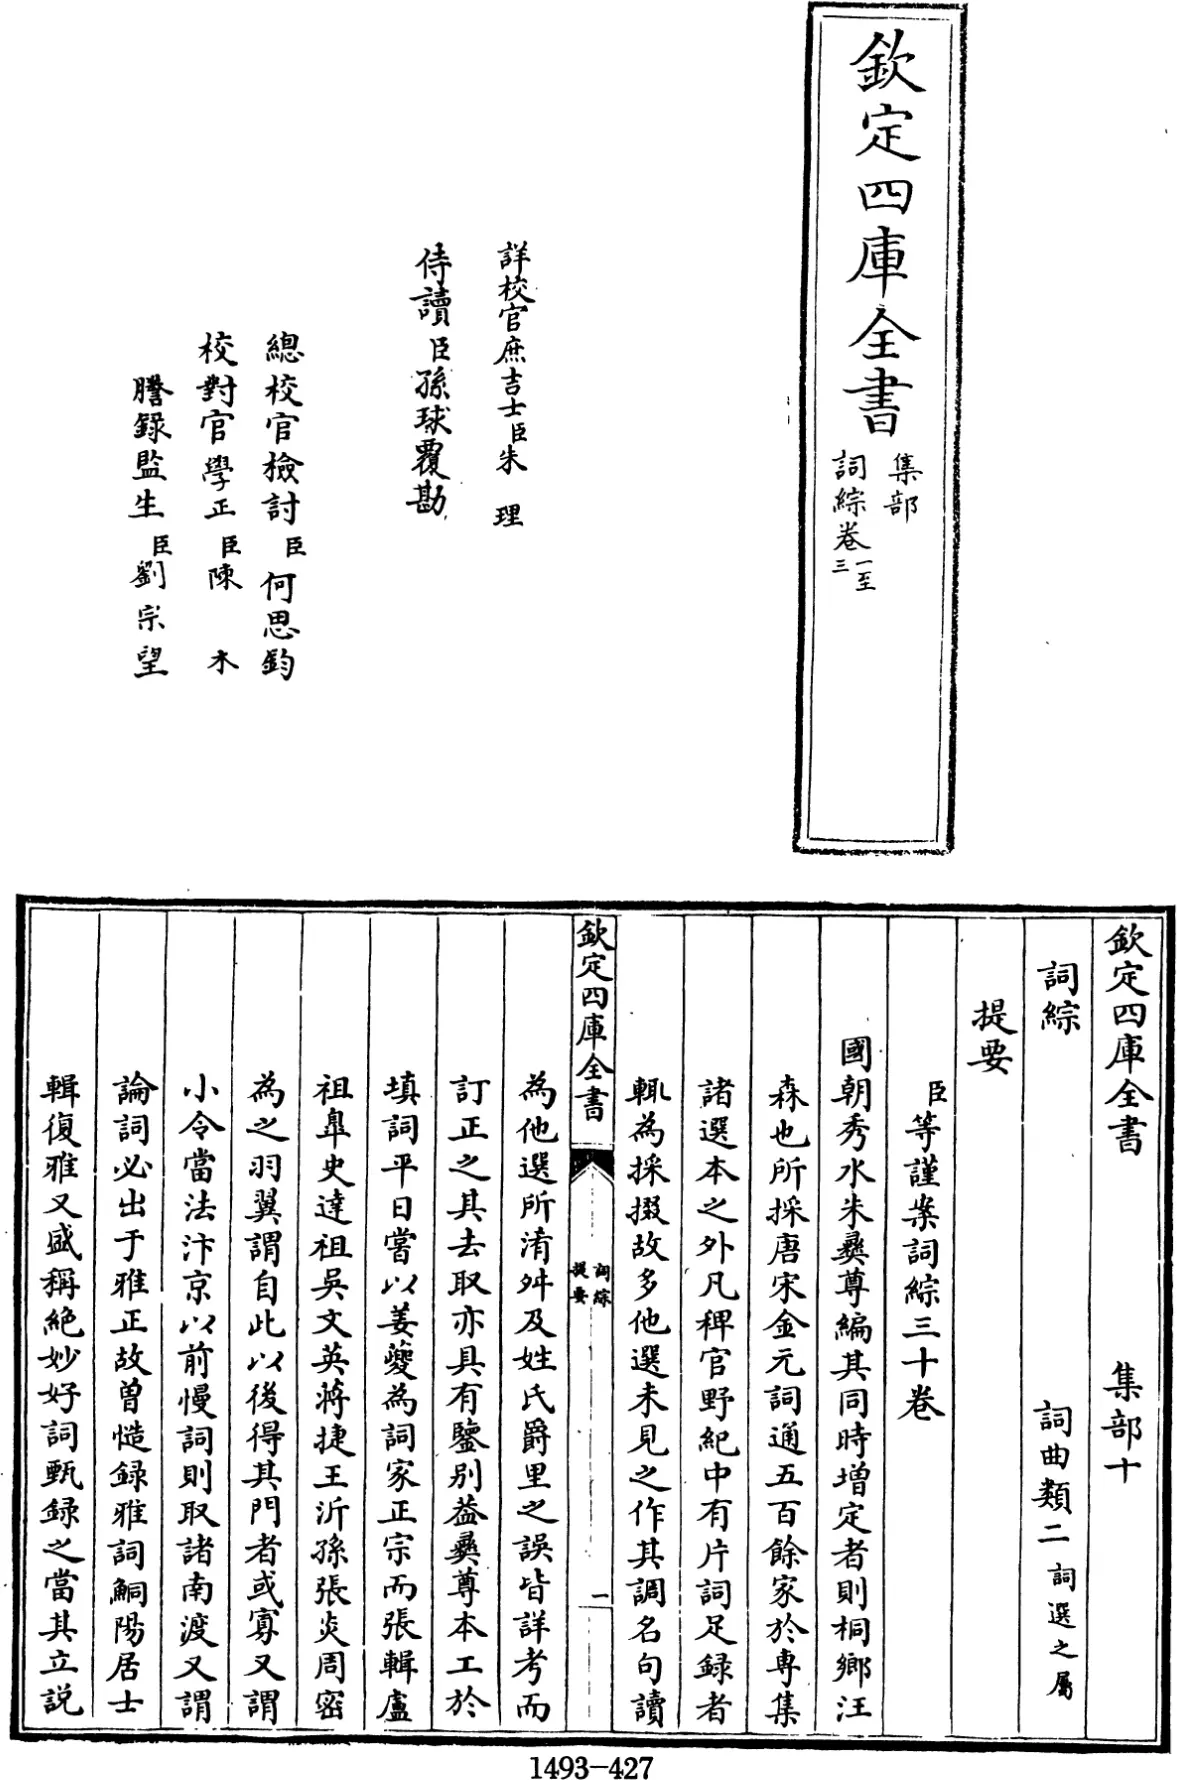 欽定四庫全書
集部
詞綜卷一至三
詳校官庶吉士臣朱理
侍讀臣孫球覆勘
總校官檢討臣何思鈞
校對官學正臣陳木
謄錄監生臣劉宗望
欽定四庫全書 集部十
詞綜 詞曲類二 詞選之屬
提要
臣等謹案詞綜三十卷
國朝秀水朱彝尊編其同時增定者則桐鄉汪
森也所採唐宋金元詞通五百餘家於專集
諸選本之外凡稗官野紀中有片詞足録者
輒為採掇故多他選未見之作其調名句讀
欽定四庫全書
詞綜
提要
一
為他選所淆舛及姓氏爵里之誤皆詳考而
訂正之其去取亦具有鑒别葢彝尊本工於
填詞平日嘗以姜夔為詞家正宗而張輯盧
祖臯史達祖吳文英蔣捷王沂孫張炎周密
為之羽翼謂自此以後得其門者或寡又謂
小令當法汴京以前慢詞則取諸南渡又謂
論詞必出于雅正故曾慥録雅詞鮦陽居士
輯復雅又盛稱絶妙好詞甄録之當其立説
1493-427